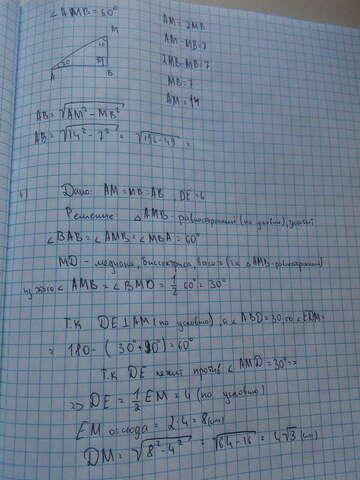 ∠AMB = 60°
AM = 2MB
AM - MB = 7
2MB - MB = 7
MB = 7
AM = 14
M
A
B
AB = √(AM² - MB²)
AB = √(14² - 7²) = √(196 - 49) =
Дано: AM = MB = AB, DE = 4
Решение △AMB - равносторонний (по условию), значит
∠BAB = ∠AMB = ∠MBA = 60°
MD - медиана, биссектриса, высота (т.к △AMB - равносторонний)
из этого ∠AMB = ∠BMD = 1/2 60° = 30°
Т.К DE⊥AM (по условию), а ∠ABD = 30, то ∠EDM =
= 180 - (30° + 90°) = 60°
Т.к DE лежит против ∠AMD = 30° =>
=> DE = 1/2 EM = 4 (по условию)
EM отсюда = 2·4 = 8 (см)
DM = √(8² - 4²) = √(64 - 16) = 4√3 (см)